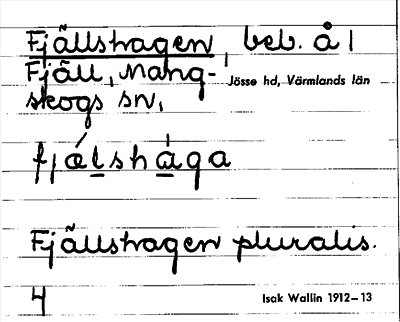 Fjällshagen, beb. å |
Fjäll, Mang-
Jösse hd, Värmlands län
skogs sn,
fjælshaga
Fjällshagen pluralis.
4
Isak Wallin 1912–13